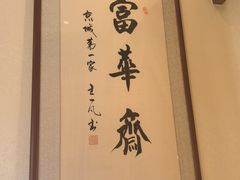 富華齋
京城第一家